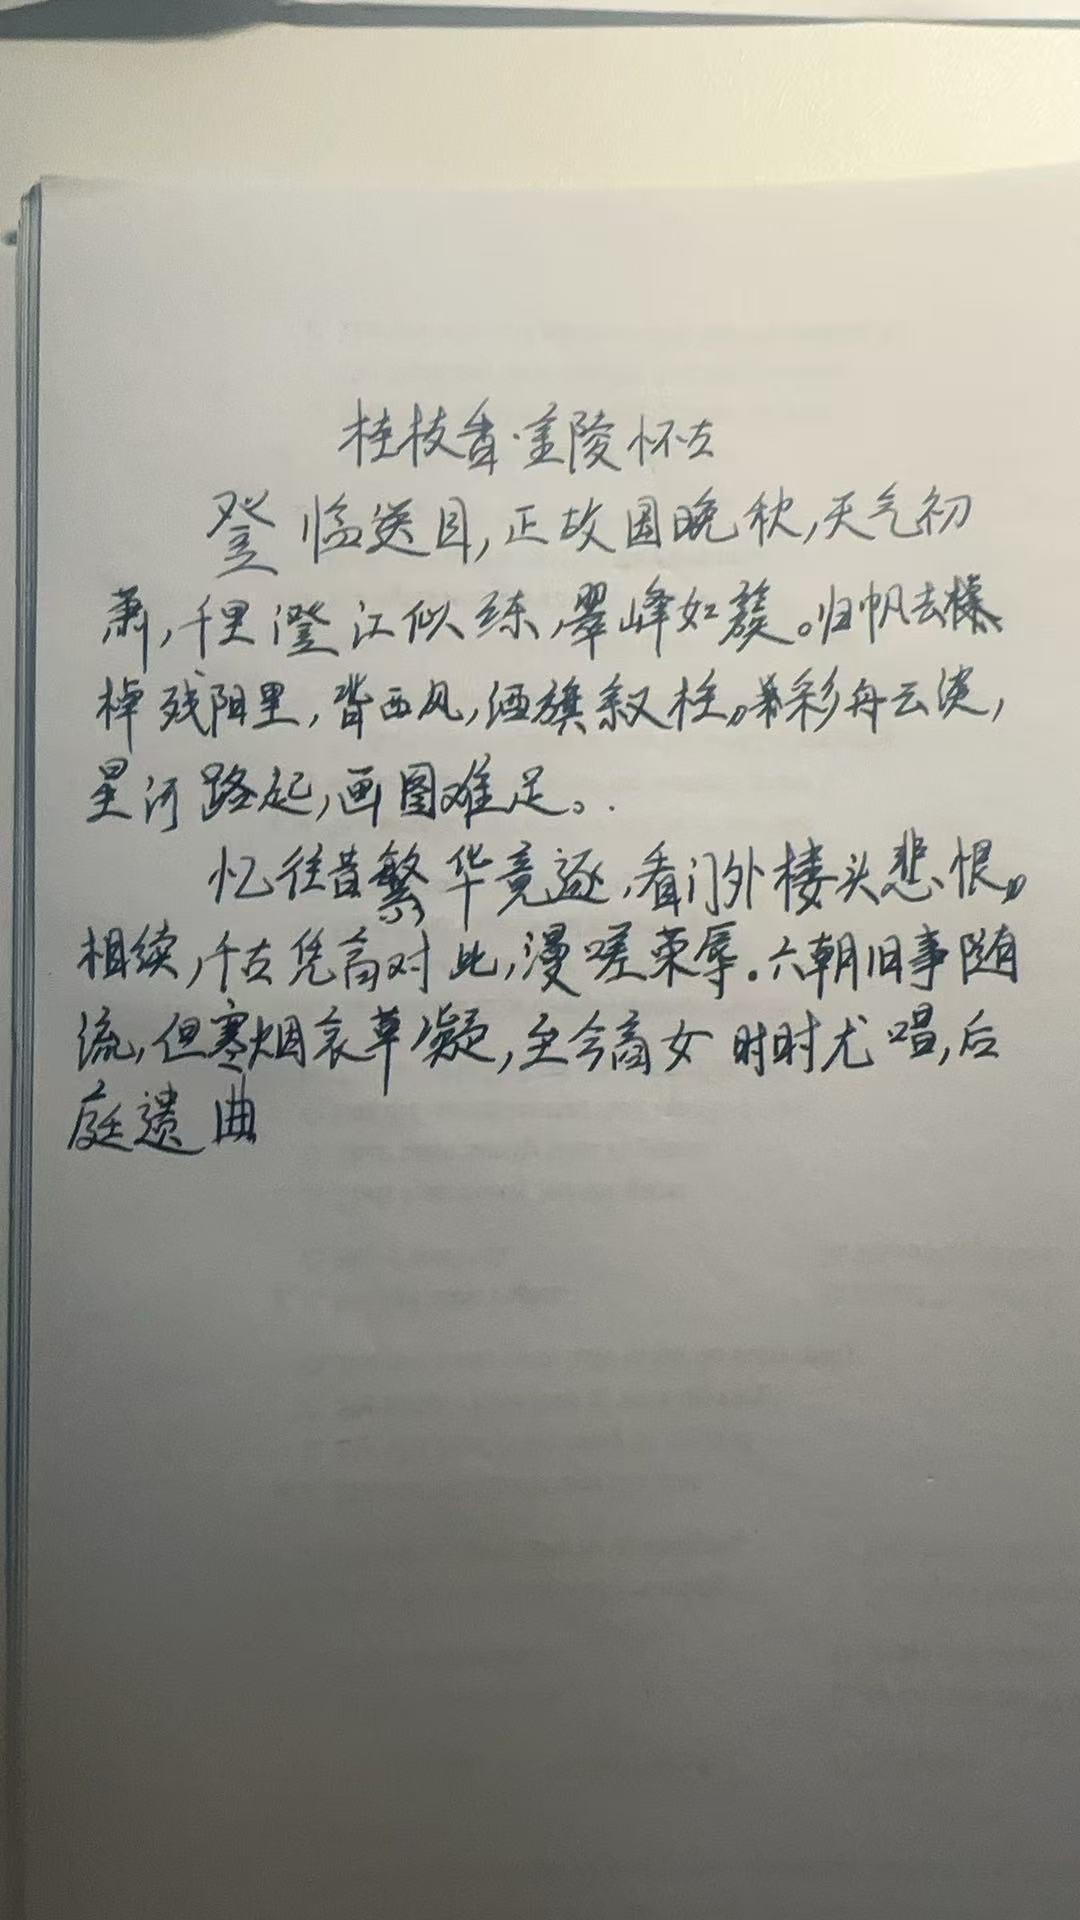 桂枝香·金陵怀古
登临送目,正故国晚秋,天气初
肃,千里澄江似练,翠峰如簇。归帆去
棹残阳里,背西风,酒旗斜矗。彩舟云淡,
星河路起,画图难足。.
忆往昔繁华竟逐,看门外楼头悲恨。
相续,千古凭高对此,漫嗟荣辱。六朝旧事随
流,但寒烟衰草凝,至今商女时时尤唱,后
庭遗曲